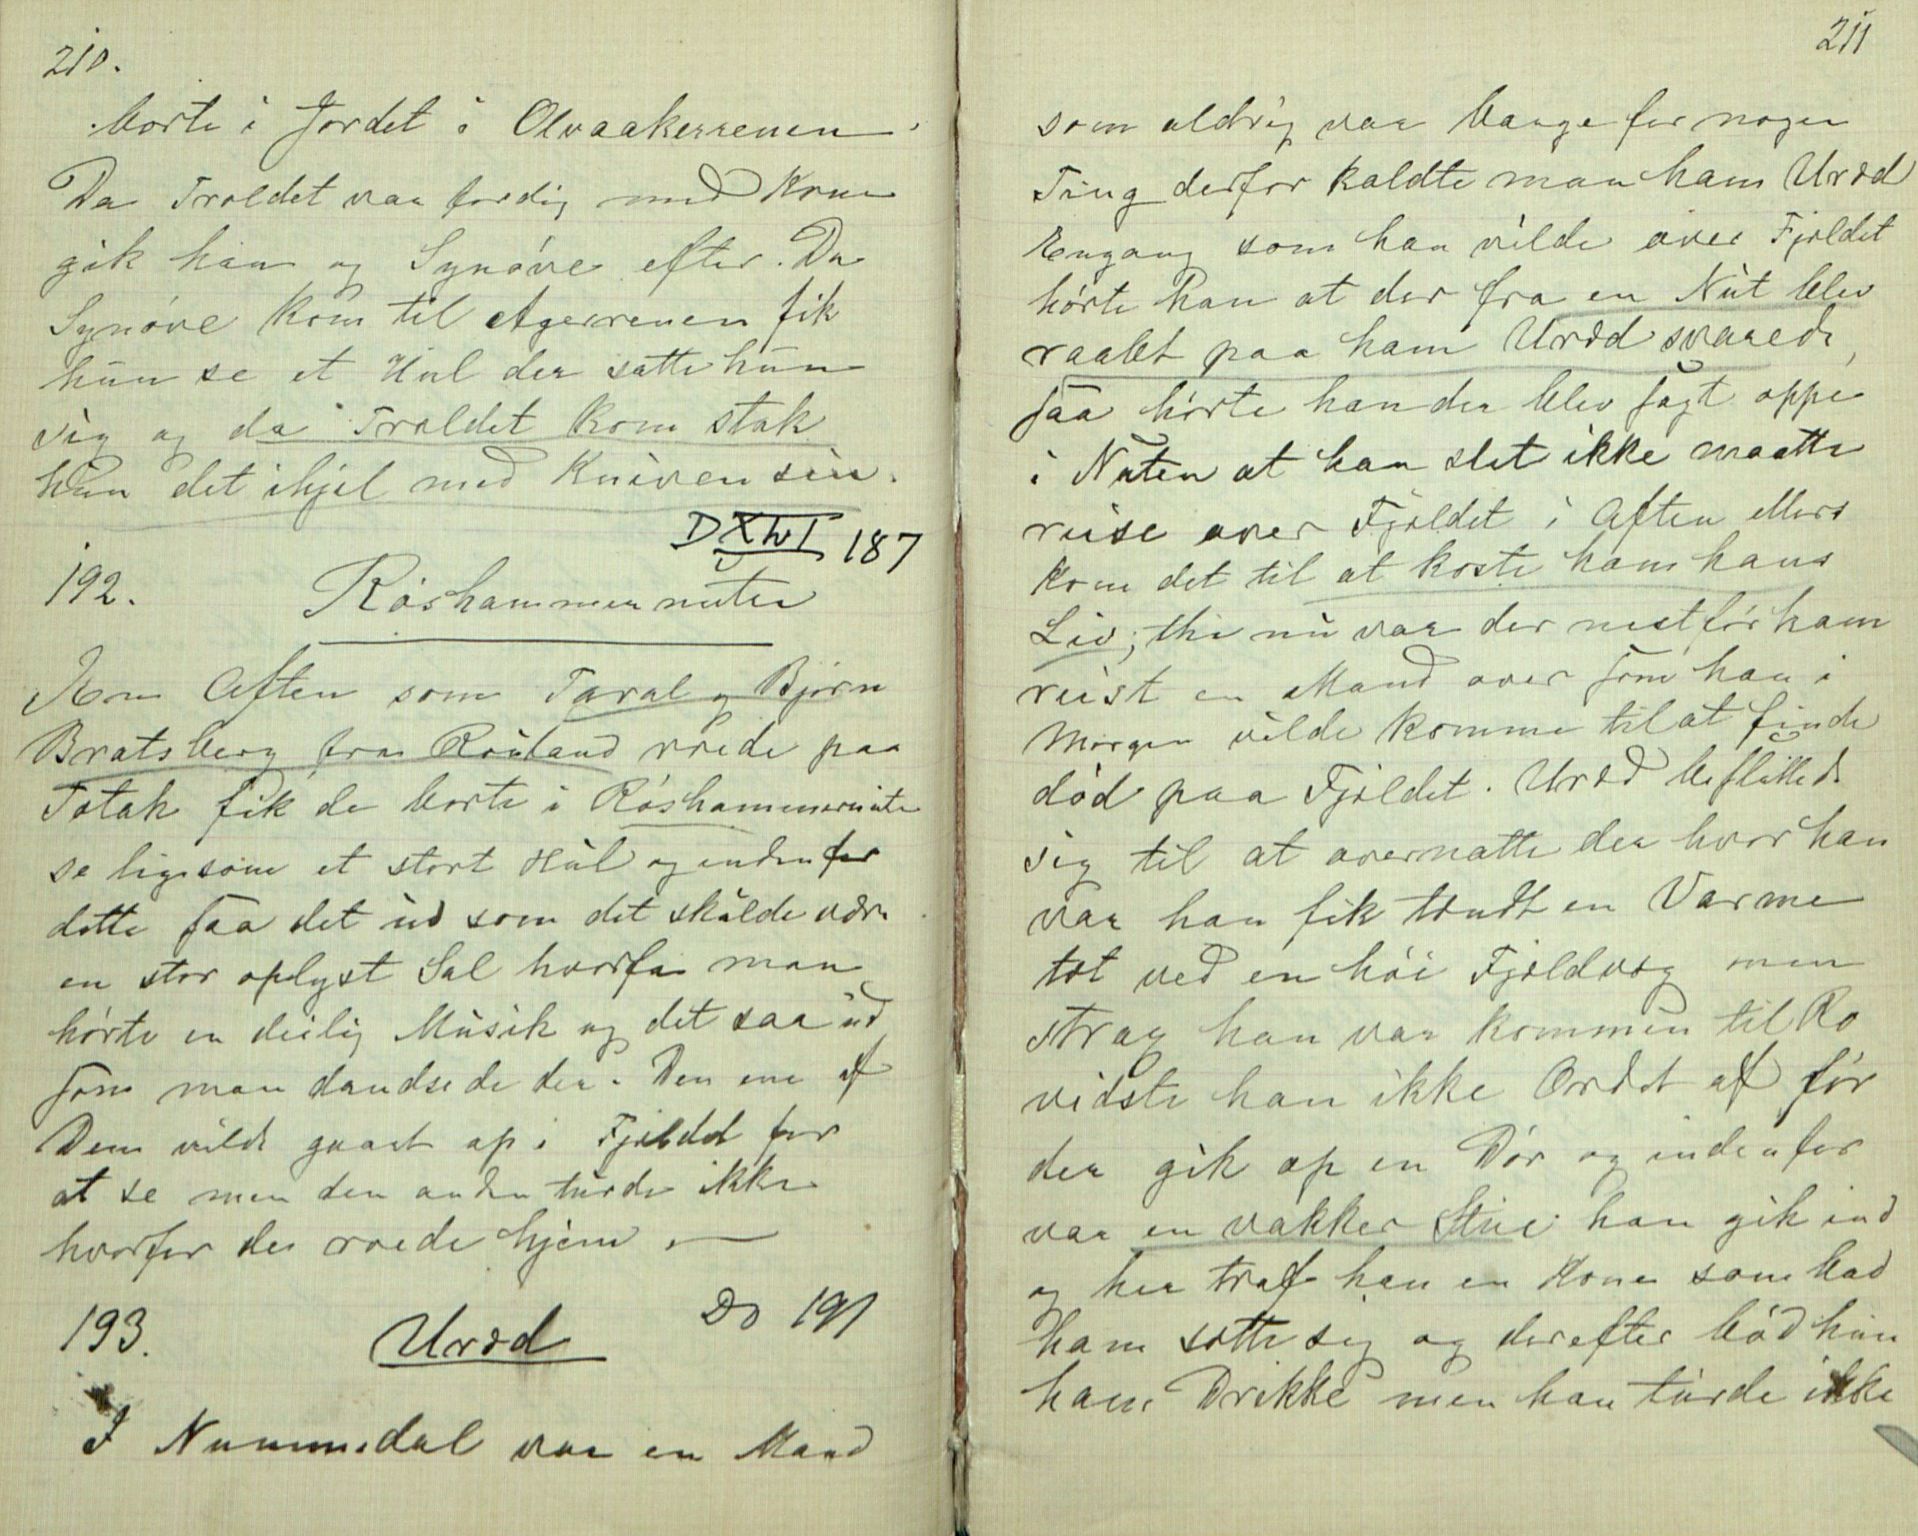 210.
borte i Jordet i Olvaakerrenen.
Da Troldet var færdig med Kone
gik han og Synøve efter. Da
Synøve kom til Agerrenen fik
hun se et Hul der satte hun
sig og da Troldet kom stak
hun det ihjel med Kniven sin.
187
192. Røshammernuten
En Aften som Taral og Bjørn
Bratsberg fra Rauland roede paa
Totak fik de borte i Røshammernuten
se ligesom et stort Hul og indenfor
dette saa det ud som det skulde være
en stor oplyst Sal hvorfra man
hørte en deilig Musik og det saa ud
som man dandsede der. Den ene af
Dem vilde gaaet op i Fjeldet for
at se men den anden turde ikke
hvorfor de roede hjem. —
Do 191
193. Uræd
I Nummedal var en Mand
211
som aldrig var bange for nogen
Ting derfor kaldte man ham Uræd
Engang som han vilde over Fjeldet
hørte han at der fra en Nut blev
raabt paa ham Uræd svarede,
saa hørte han der blev sagt oppe
i Nuten at han slet ikke maatte
reise over Fjeldet i Aften ellers
kom det til at koste ham hans
Liv; thi nu var der nest før ham
reist en Mand over som han i
Morgen vilde komme til at finde
død paa Fjeldet. Uræd beflittede
sig til at overnatte der hvor han
var han fik tændt en Varme
tæt ved en høi Fjeldvæg men
strax han var kommen til Ro
vidste han ikke Ordet af før
der gik op en Dør og indenfor
var en vakker Stue han gik ind
og her traf han en Kone som bad
ham sætte sig og derefter bød hun
ham Drikke men han turde ikke